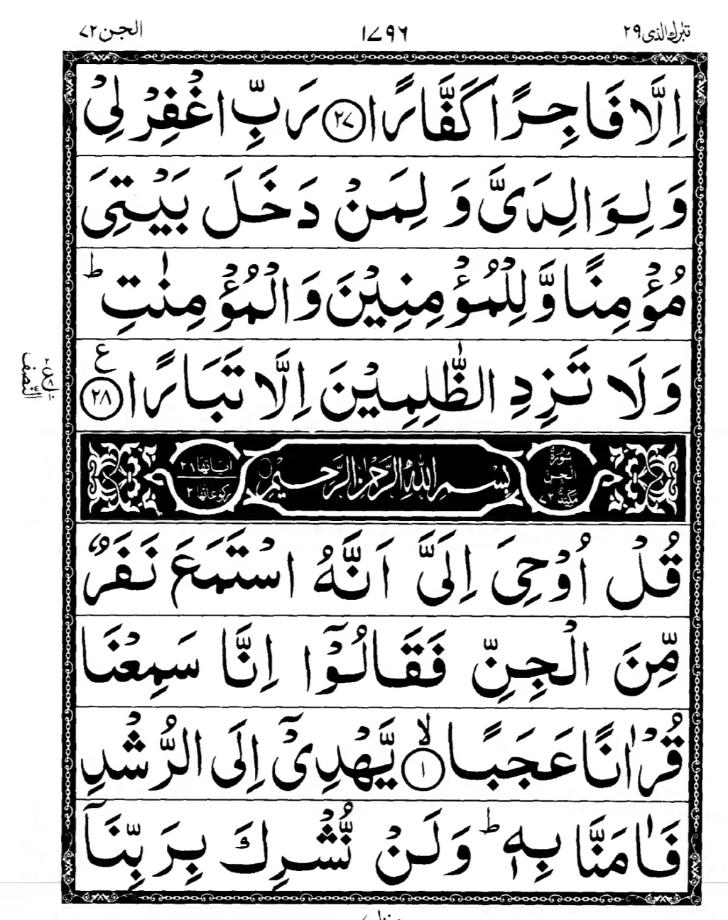 تبٰرك الذی ٢٩
١٧٩٦
الجن ٧٢
اِلَّا فَاجِرًا كَفَّارًا ﴿٢٧﴾ رَبِّ اغْفِرْ لِیْ
وَ لِوَالِدَیَّ وَ لِمَنْ دَخَلَ بَیْتِیَ
مُؤْمِنًا وَّ لِلْمُؤْمِنِیْنَ وَ الْمُؤْمِنٰتِ ؕ
وَ لَا تَزِدِ الظّٰلِمِیْنَ اِلَّا تَبَارًا ﴿٢٨﴾ ع
النصف
سُوْرَةُ الجِنّ مَکِّیَّةٌ ٧٢
بِسْمِ اللّٰهِ الرَّحْمٰنِ الرَّحِیْمِ
اٰیاتها ٢٨
رکوعاتها ٢
قُلْ اُوْحِیَ اِلَیَّ اَنَّهُ اسْتَمَعَ نَفَرٌ
مِّنَ الْجِنِّ فَقَالُوْۤا اِنَّا سَمِعْنَا
قُرْاٰنًا عَجَبًا ﴿١﴾ ۙ یَّهْدِیْۤ اِلَی الرُّشْدِ
فَاٰمَنَّا بِهٖ ؕ وَ لَنْ نُّشْرِكَ بِرَبِّنَاۤ